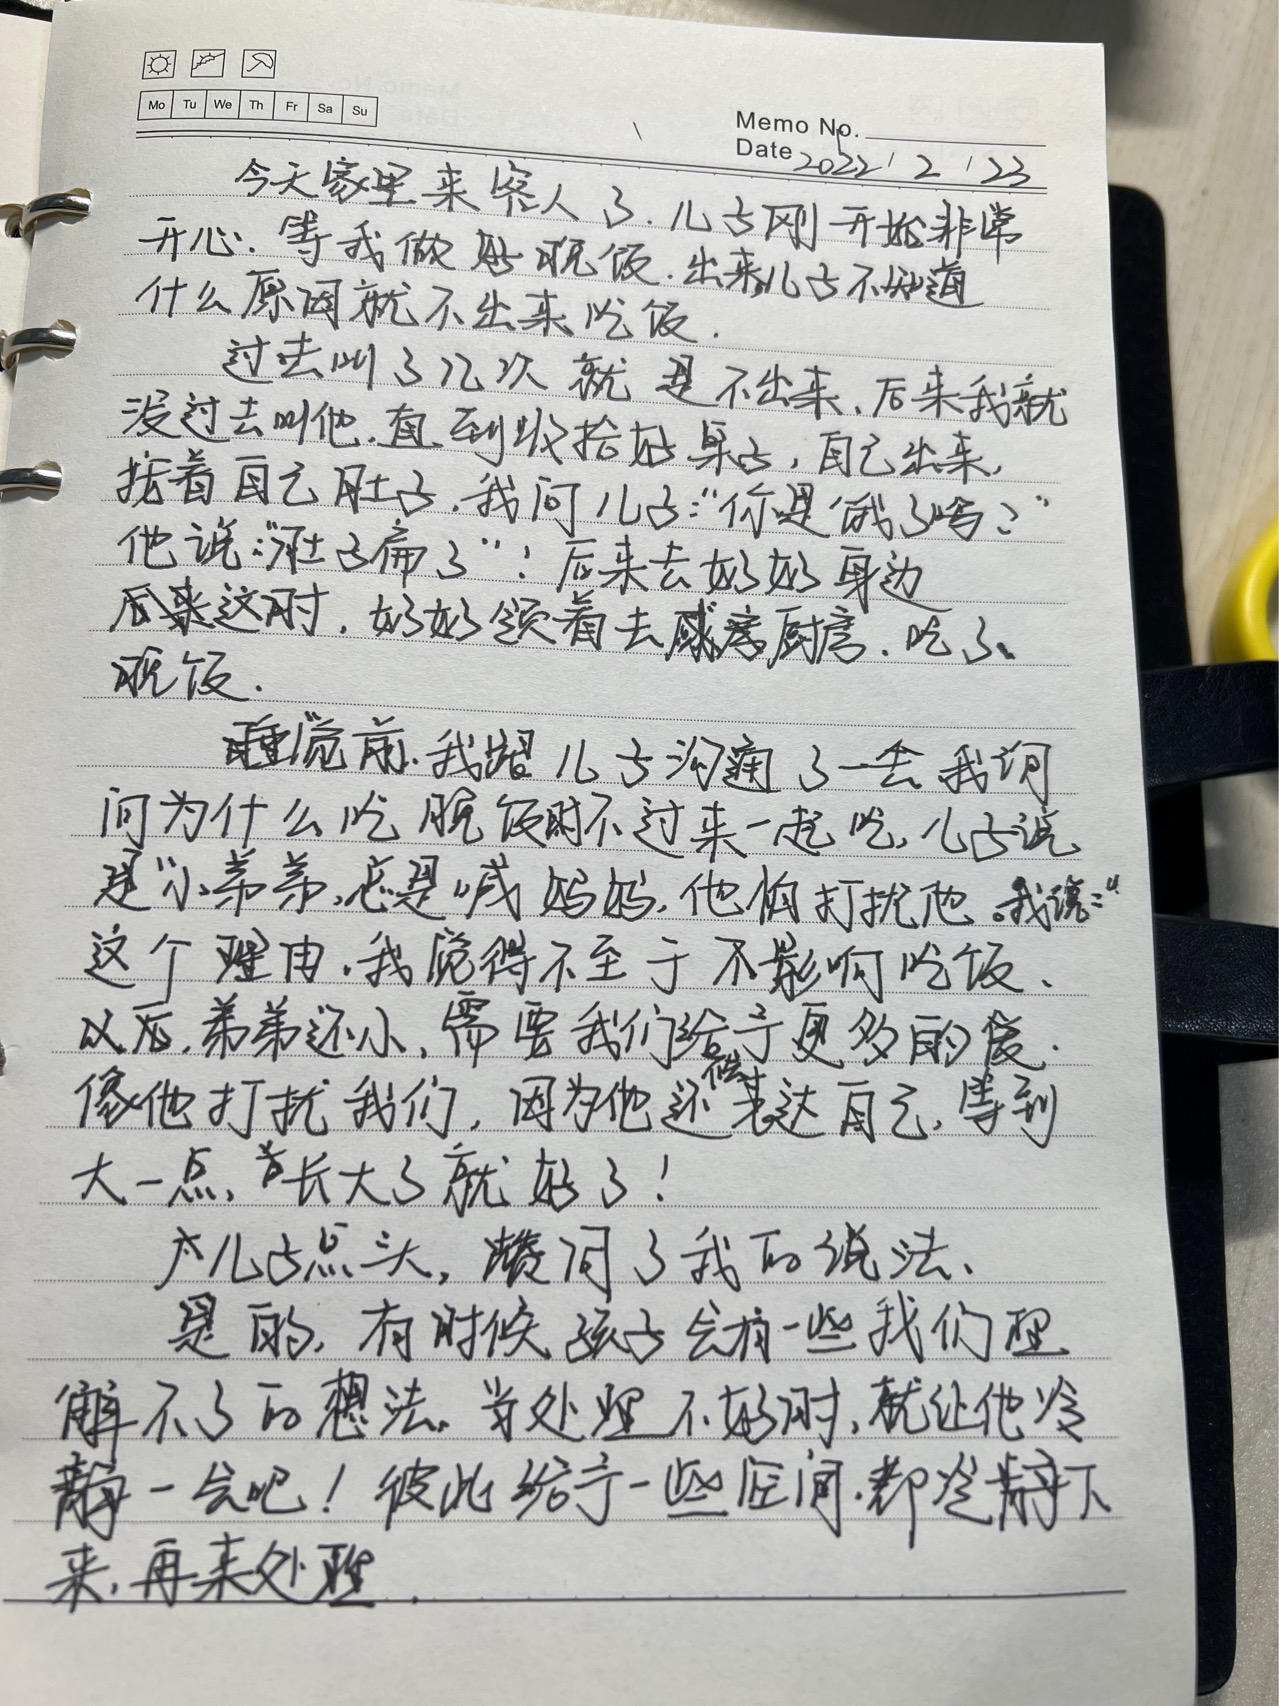 Mo Tu We Th Fr Sa Su
Memo No.
Date 2022 / 2 / 23
今天家里来客人了.儿子刚开始非常
开心.等我做好晚饭.出来儿子不知道
什么原因就不出来吃饭.
过去叫了几次就是不出来、后来我就
没过去叫他.直到收拾好桌子,自己出来,
捂着自己肚子.我问儿子:“你是饿了吗?”
他说:“肚子扁了”!后来去奶奶身边
这时.奶奶领着去厨房.吃了
晚饭.
睡觉前.我跟儿子沟通了一会我询
问为什么吃晚饭时不过来一起吃,儿子说
是“小弟弟,总是喊妈妈,他怕打扰他.我说:“
这个理由.我觉得不至于不影响吃饭、
以后,弟弟还小,需要我们给予更多的爱.
像他打扰我们,因为他还 表达自己,等到
大一点,长大了就好了!
儿子点头,赞同了我的说法、
是的,有时候孩子会有一些我们理
解不了的想法.当处理不好时,就让他冷
静一会吧!彼此给予一些空间.都冷静下
来,再来处理.